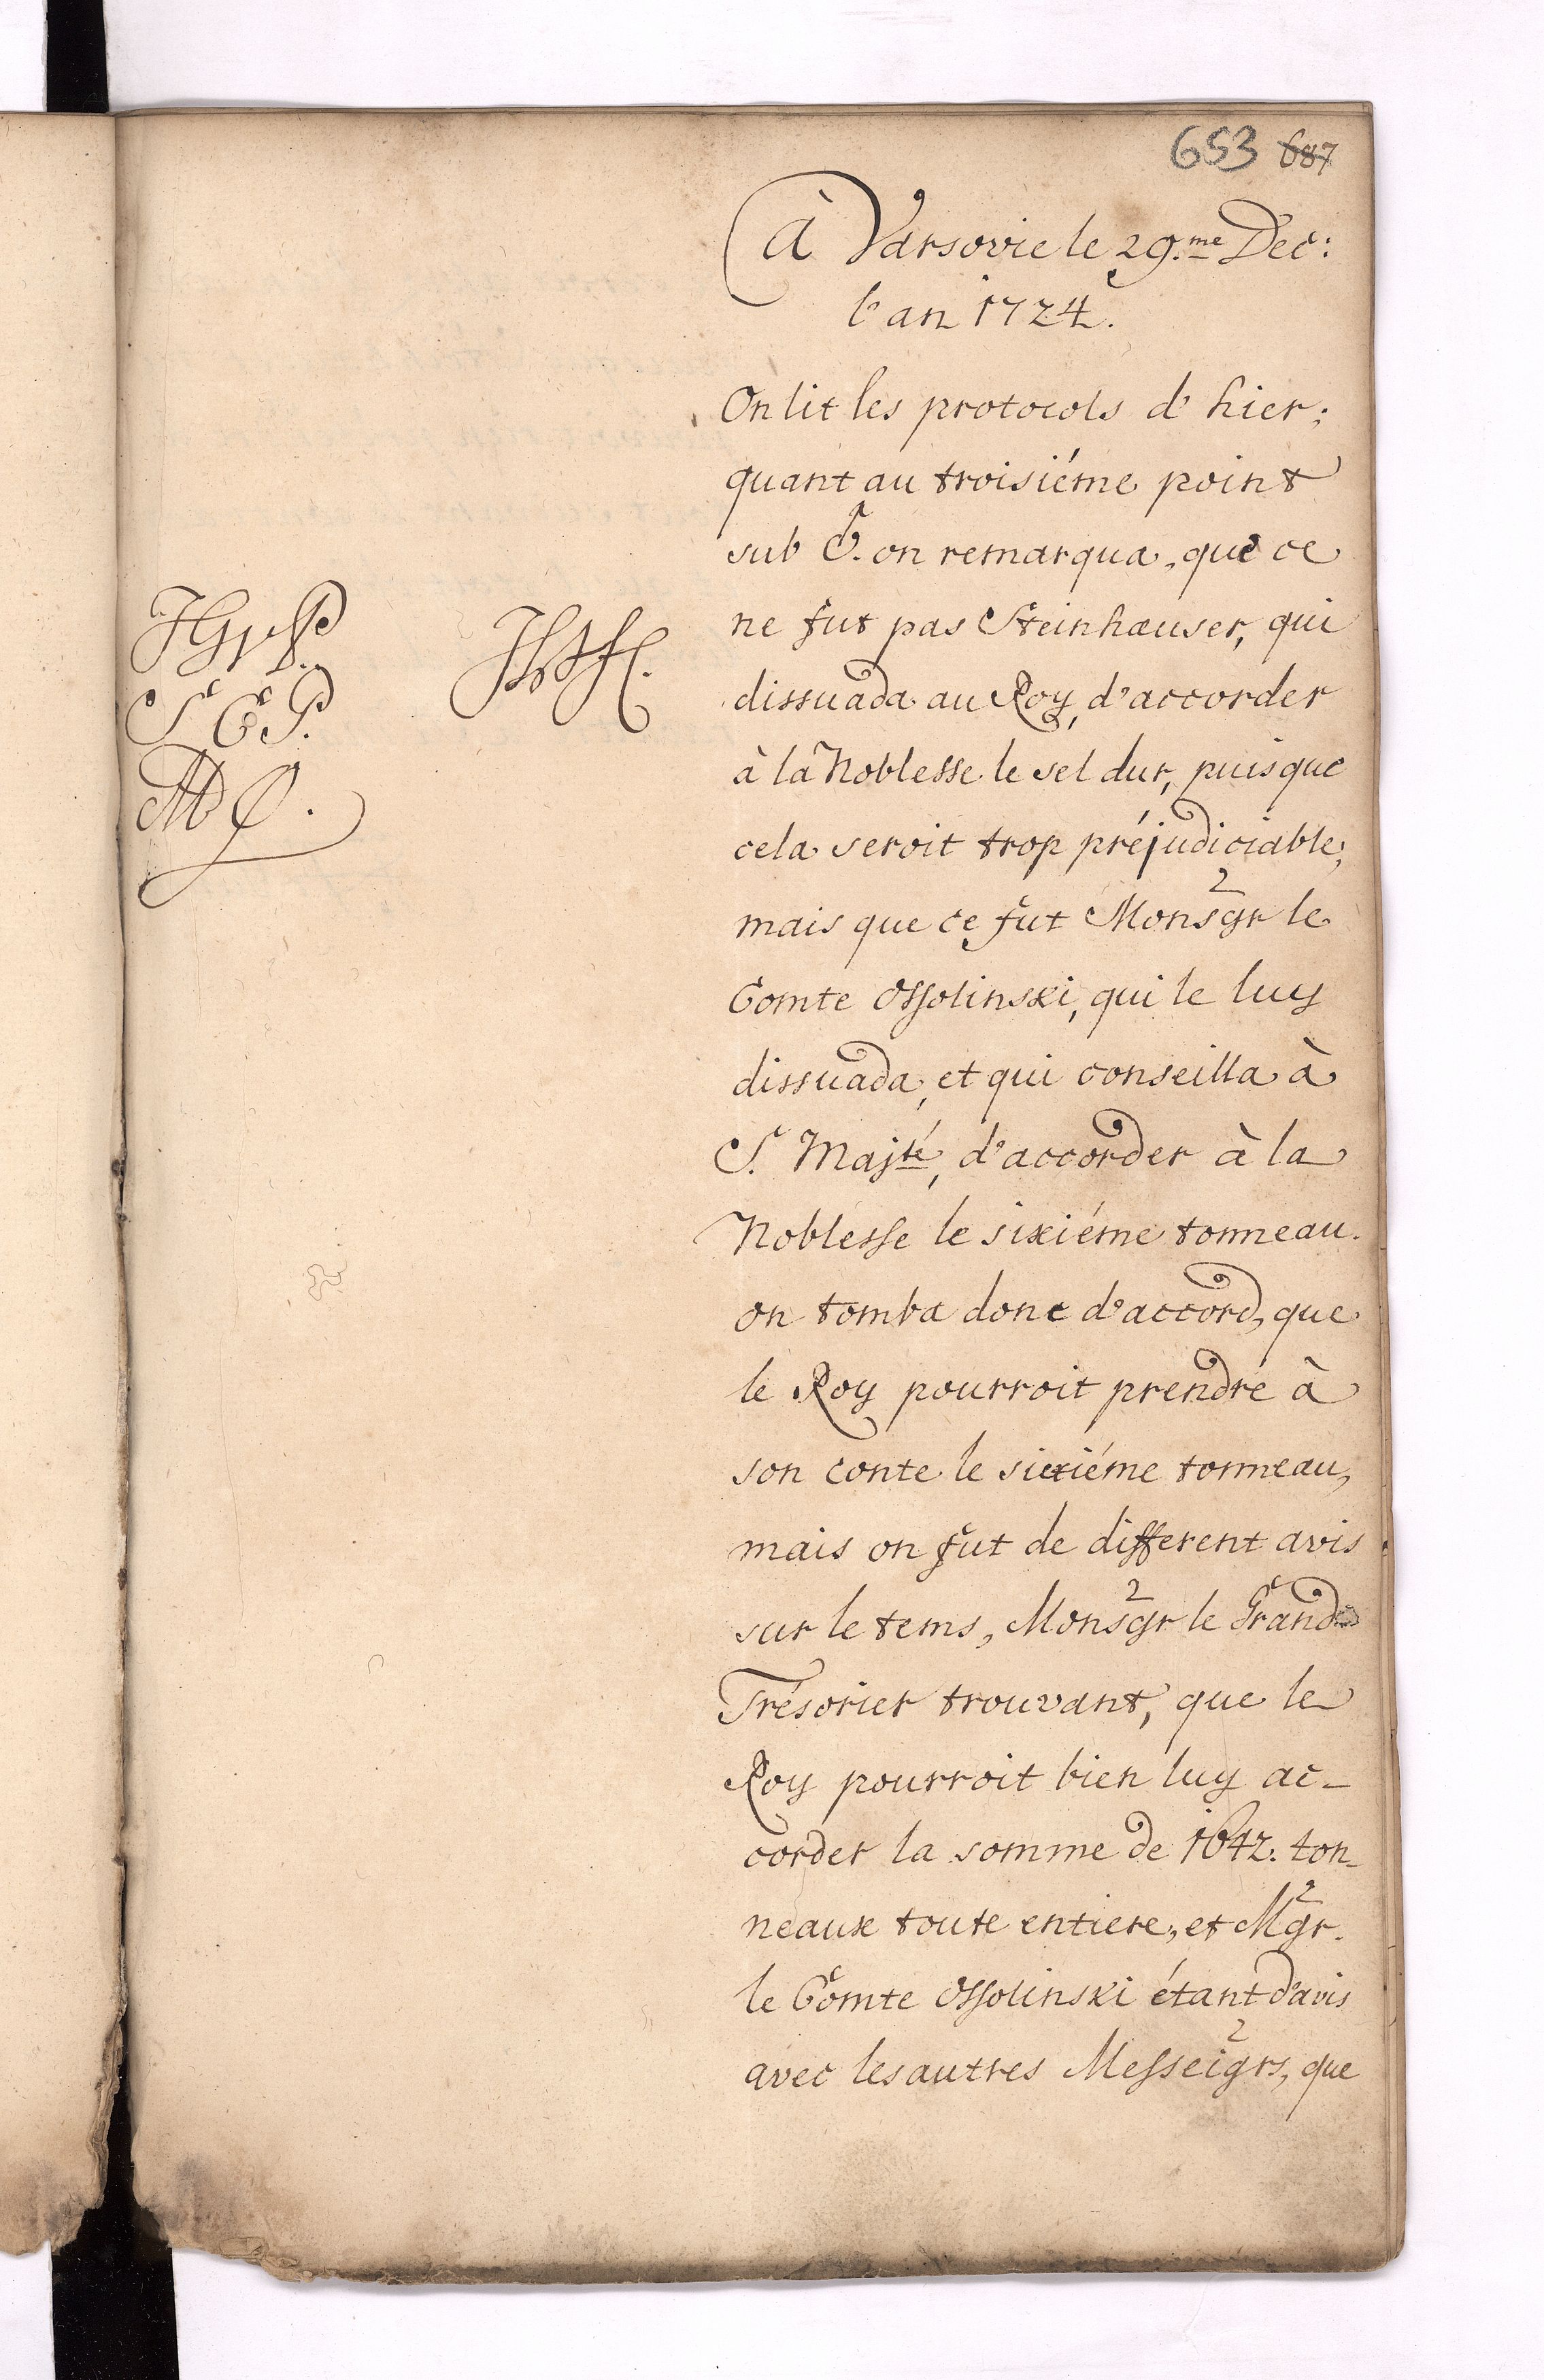 653 687
À Varsovie le 29.me Dec:
l'an 1724.
On lit les protocols d'hier;
quant au troisiéme point
sub on remarqua, que ce
ne fut pas Steinhæuser, qui
dissuada au Roy, d'accorder
à la Noblesse le sel dur, puisque
cela seroit trop préjudiciable;
mais que ce fut Monsgr le
Comte Ossolinski, qui le luy
dissuada, et qui conseilla à
S. Majté, d'accorder à la
Noblesse le sixiéme tonneau.
on tomba donc d'accord, que
le Roy pourroit prendre à
son conte le sixiéme tonneau,
mais on fut de different avis
sur le tems, Monsgr le Grand
Trésorier trouvant, que le
Roy pourroit bien luy ac-
corder la somme de 1642. ton-
neaux toute entiere, et Mgr.
le Comte Ossolinski étant d'avis
avec les autres Messeigrs, que